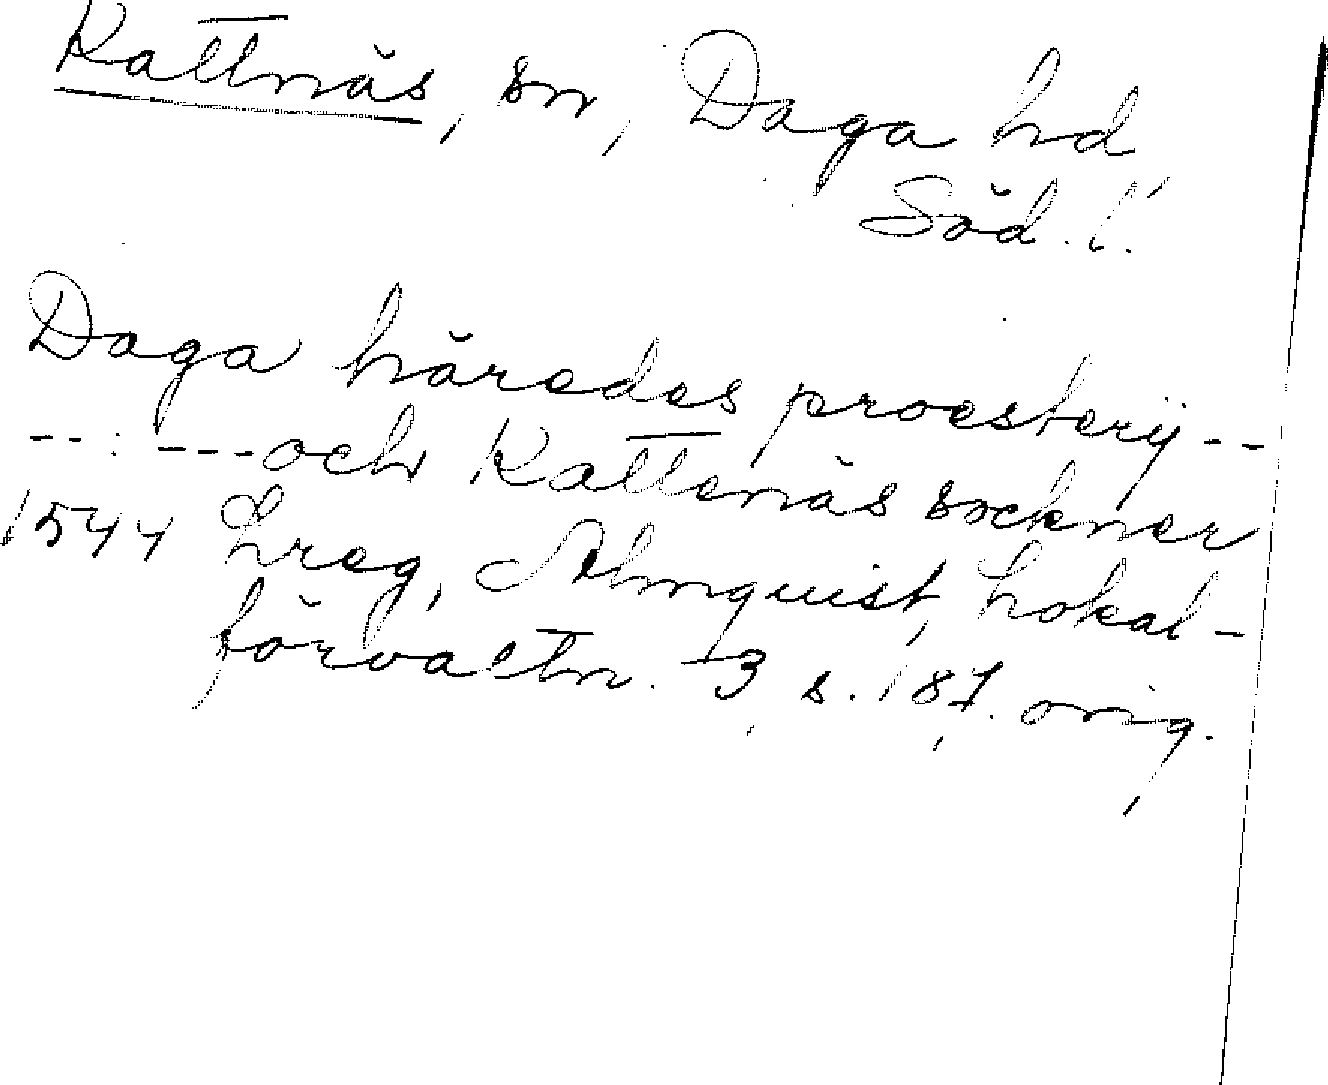 Kattnäs, sn, Daga hd
Söd. l.
Daga häredes proesterij--
--:---och Kattenäs sockner
1544 Lreg, Almquist, Lokal-
förvaltn. 3 s. 187. orig.